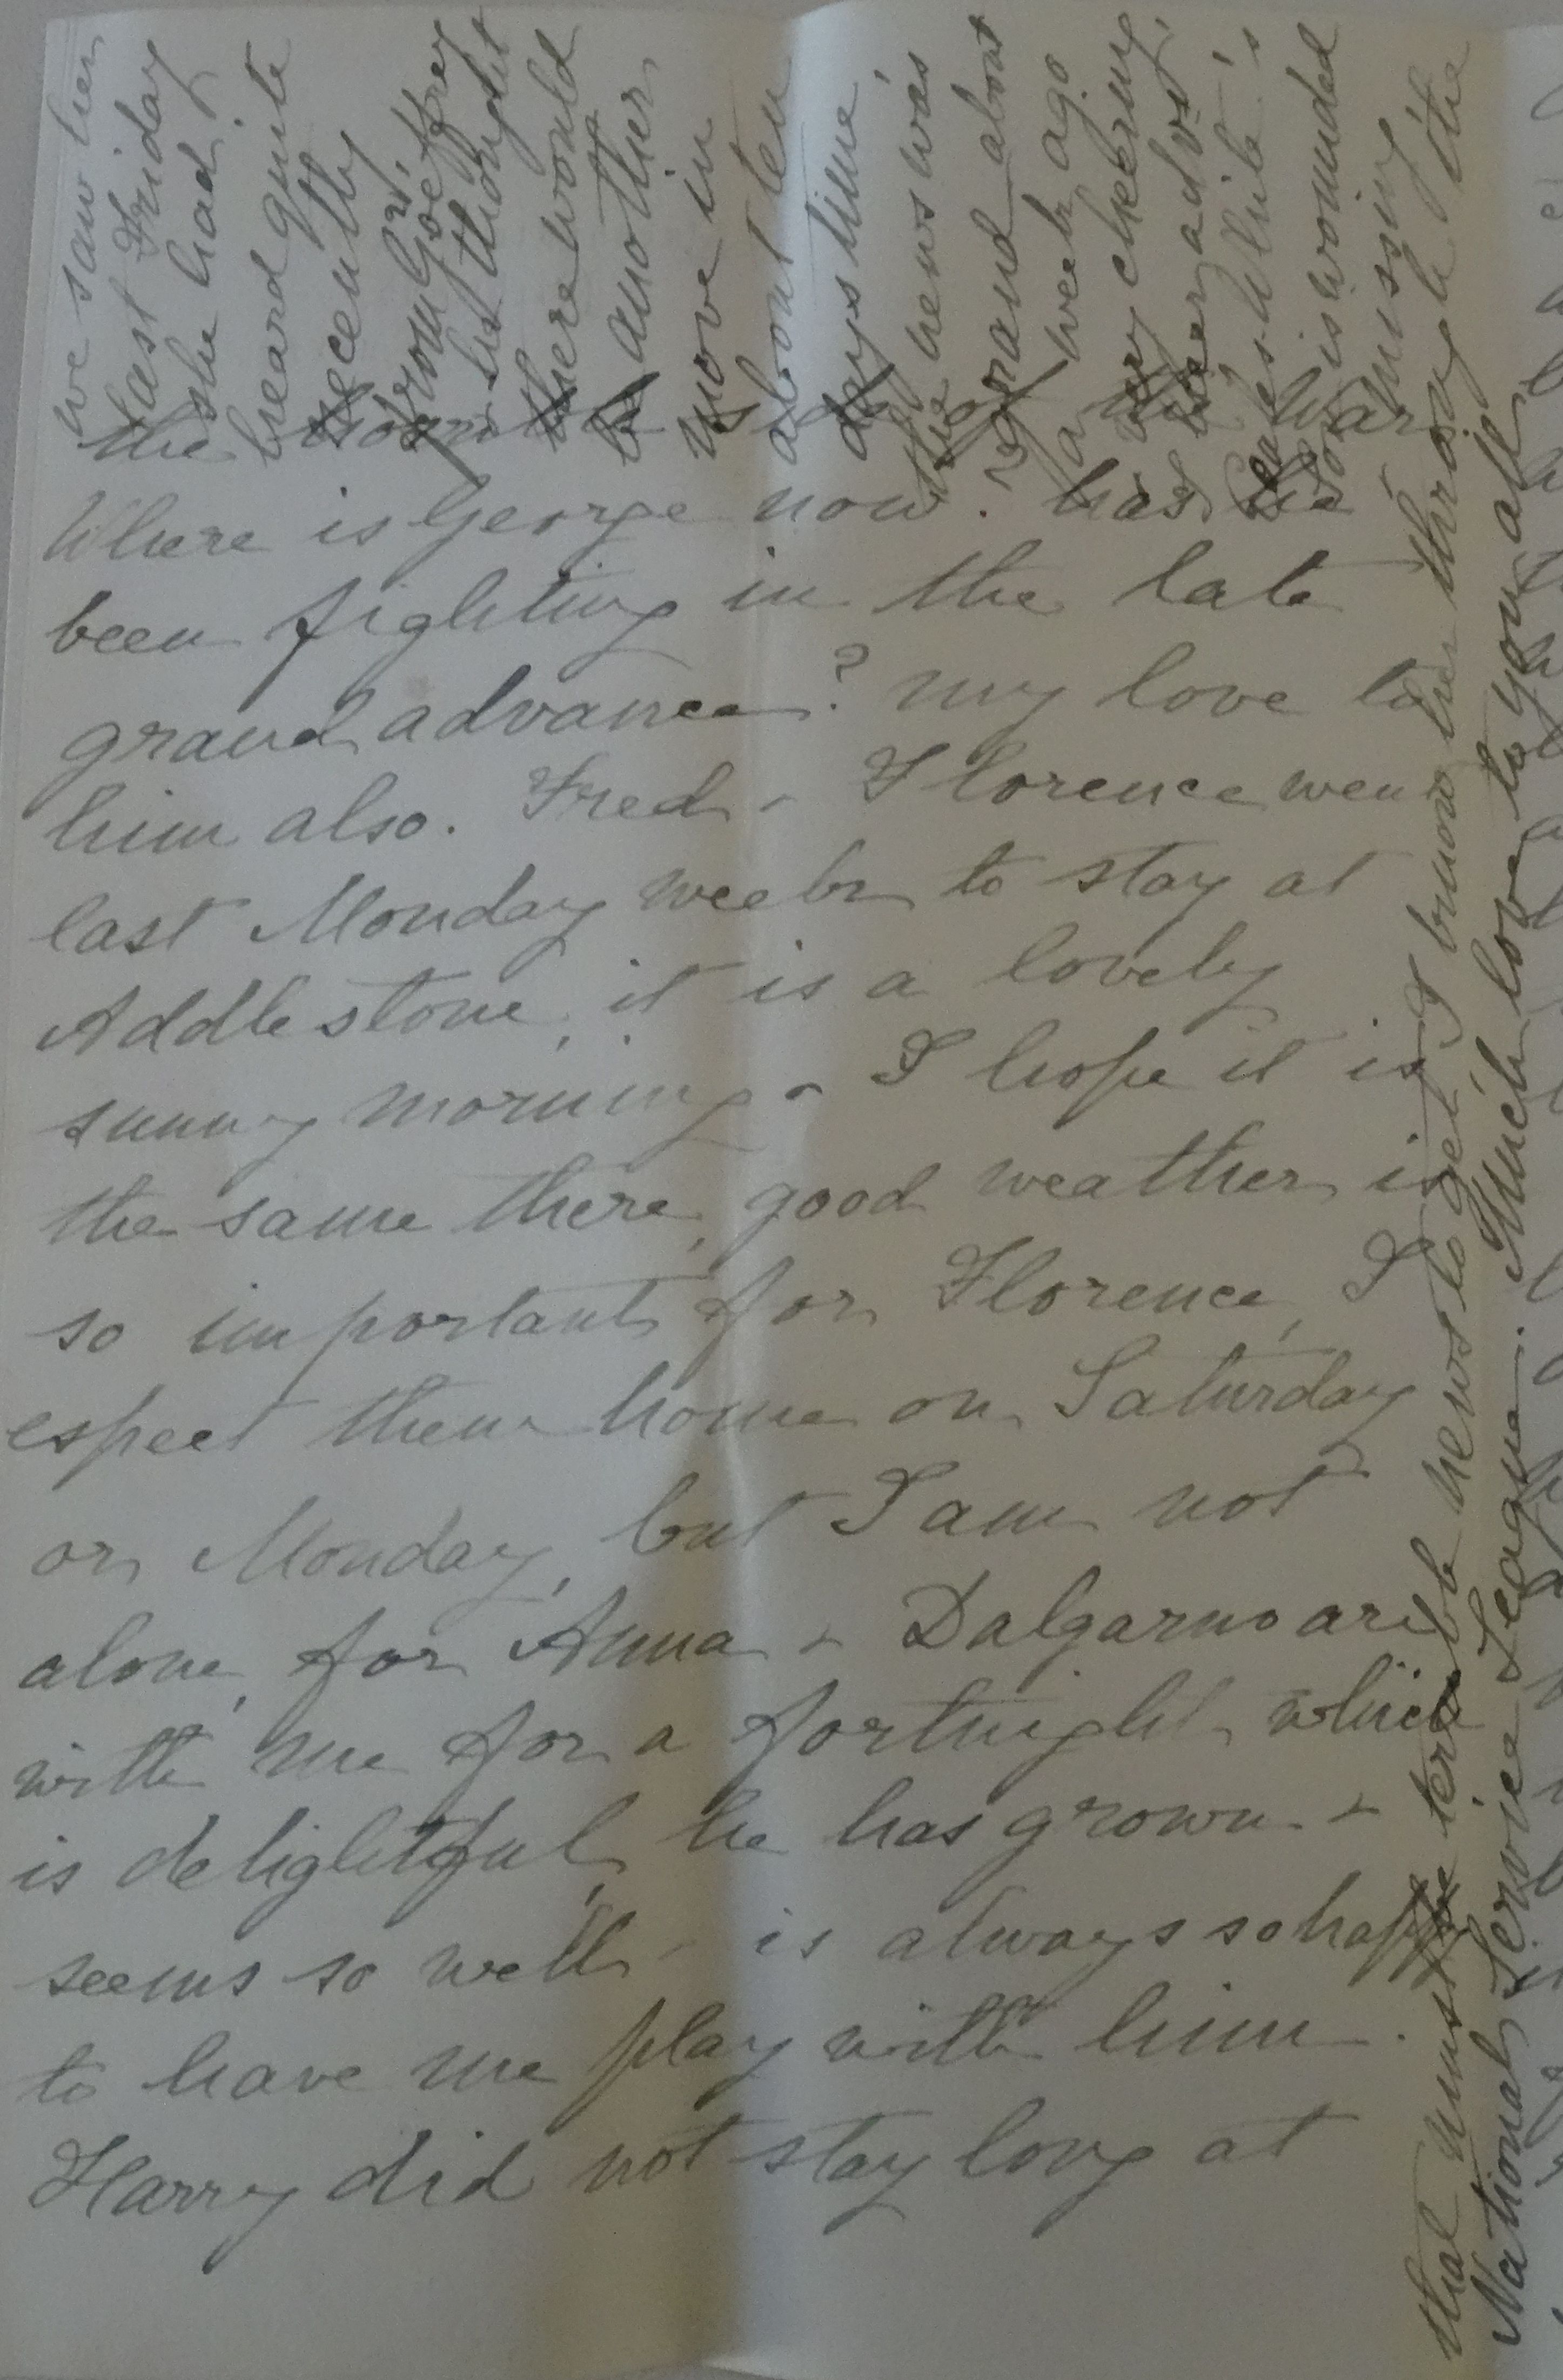 the horrible side of the War
Where is George now? has he
been fighting in the late
grand advance? my love to
him also. Fred & Florence wen
last Monday week to stay at
Addlestone, it is a lovely
sunny morning & I hope it is
the same there, good weather is
so important for Florence, I
espect them home on Saturday
or Monday, but I am not
alone, for Anna & Dalgarno are
with me for a fortnight which
is delightful, he has grown &
seems so well & is always so happy
to have me play with him.
Harry did not stay long at
we saw her
last Friday
she had
heard quite
recently
from Geoffrey
he thought
there would
be another
move in
about ten
days time
the news was
grand about
a week ago
very cheering,
son is wounded
& missing
that must be terrible news to get, I know her through the
National Service League. Much love to you all